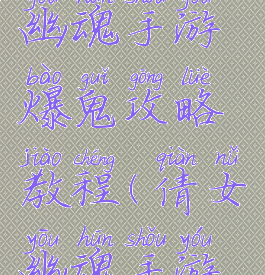 yōu hún shǒu yóu
幽魂手游
bào guǐ gōng lüè
爆鬼攻略
jiào chéng qiàn nǚ
教程(倩女
yōu hún shǒu yóu
幽魂手游